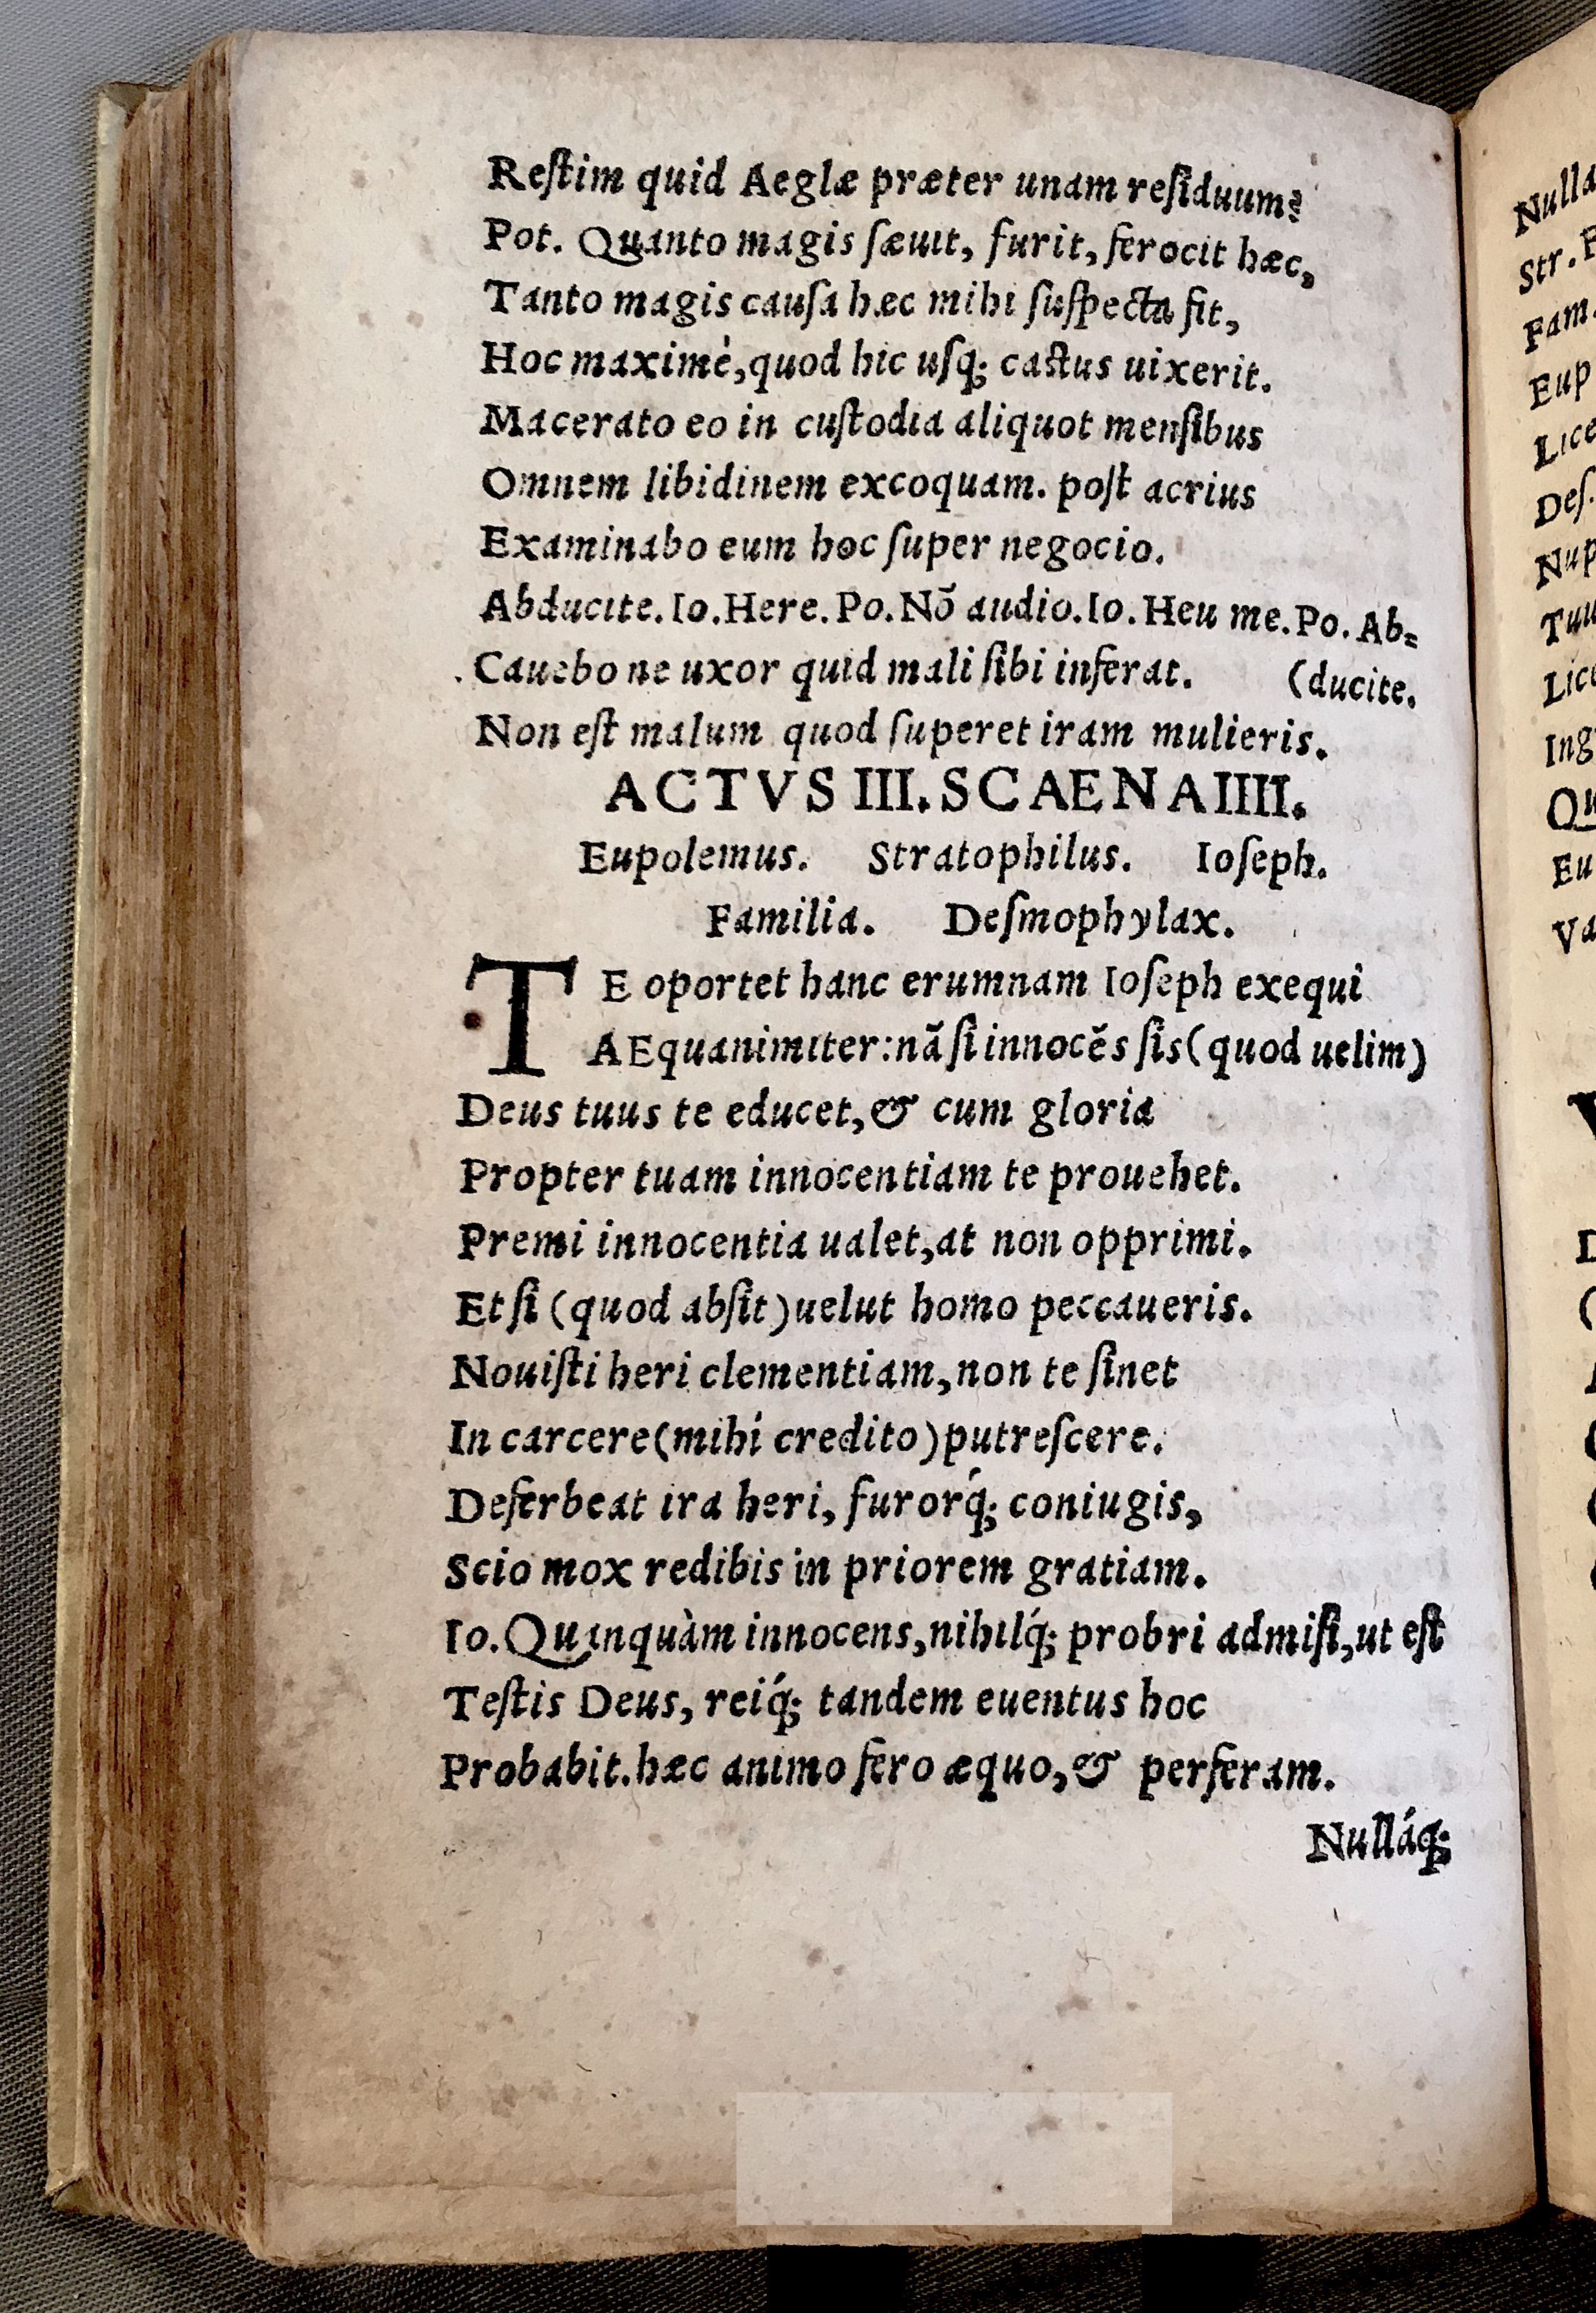 Reſtim quid Aeglæ præter unam reſiduum?
Pot. Quanto magis ſæuit, furit, ferocit hæc,
Tanto magis cauſa hæc mihi ſuſpecta fit,
Hoc maximè, quod hic uſq; caſtus uixerit.
Macerato eo in cuſtodia aliquot menſibus
Omnem libidinem excoquam. poſt acrius
Examinabo eum hoc ſuper negocio.
Abducite. Io. Here. Po. Nō audio. Io. Heu me. Po. Ab=
Cauebo ne uxor quid mali ſibi inferat. (ducite.
Non eſt malum quod ſuperet iram mulieris.
ACTVS III. SCAENA IIII.
Eupolemus. Stratophilus. Ioſeph.
Familia. Deſmophylax.
TE oportet hanc erumnam Ioſeph exequi
AEquanimiter: nā ſi innocēs ſis (quod uelim)
Deus tuus te educet, & cum gloria
Propter tuam innocentiam te prouehet.
Premi innocentia ualet, at non opprimi.
Et ſi (quod abſit) uelut homo peccaueris.
Nouiſti heri clementiam, non te ſinet
In carcere (mihi credito) putreſcere.
Deferbeat ira heri, furorq́; coniugis,
Scio mox redibis in priorem gratiam.
Io. Quanquàm innocens, nihilq́; probri admiſi, ut eſt
Teſtis Deus, reiq́; tandem euentus hoc
Probabit. hæc animo fero æquo, & perferam.
Nulláq;
Nulla
Str.
Fam.
Eup
Lice
Deſ.
Nup
Tuu
Lice
Ing
Qu
Eu
Va